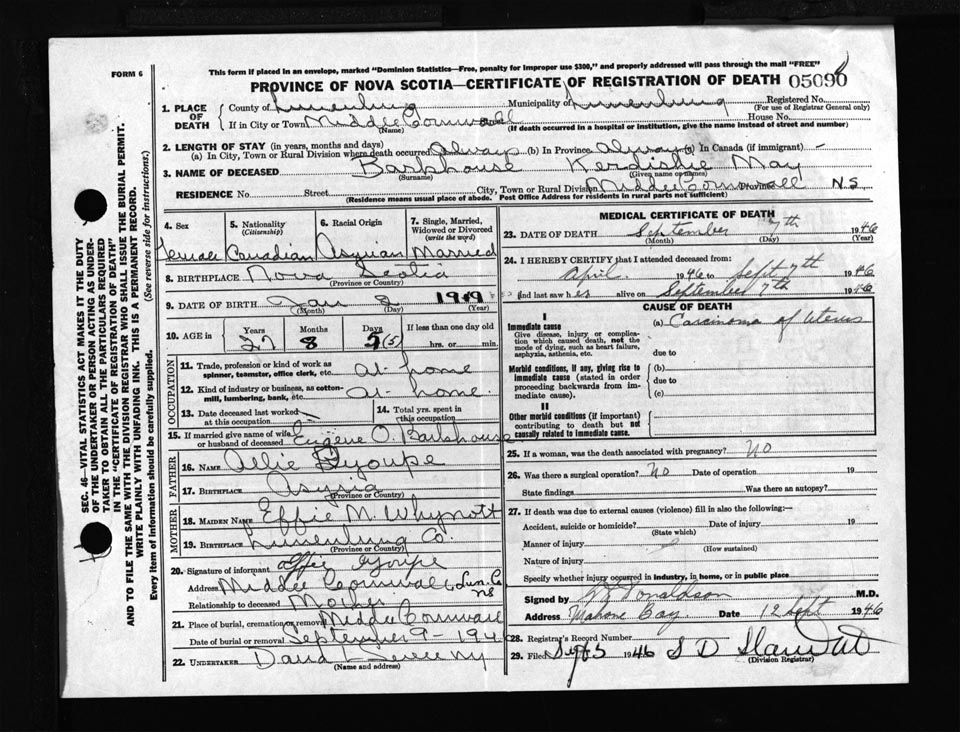 FORM 6
This form if placed in an envelope, marked "Dominion Statistics—Free, penalty for improper use $300," and properly addressed will pass through the mail "FREE"
PROVINCE OF NOVA SCOTIA—CERTIFICATE OF REGISTRATION OF DEATH 05090
1. PLACE OF DEATH County of Lunenburg Municipality of Lunenburg Registered No.
(For use of Registrar General only)
If in City or Town Middle Cornwall House No.
(Name) (If death occurred in a hospital or institution, give the name instead of street and number)
2. LENGTH OF STAY (in years, months and days)
(a) In City, Town or Rural Division where death occurred Always (b) In Province Always (c) In Canada (if immigrant) -
3. NAME OF DECEASED Barkhouse Kerdishie May
(Surname) (Given name or names)
RESIDENCE No. Street City, Town or Rural Division Middle Cornwall Province N S
(Residence means usual place of abode. Post Office Address for residents in rural parts not sufficient)
4. Sex 5. Nationality (Citizenship) 6. Racial Origin 7. Single, Married, Widowed or Divorced (write the word)
Female Canadian Asyrian Married
8. BIRTHPLACE Nova Scotia
(Province or Country)
9. DATE OF BIRTH Jan 2 1919
(Month) (Day) (Year)
10. AGE in Years Months Days If less than one day old
27 8 5 (5) hrs. or min.
OCCUPATION
11. Trade, profession or kind of work as spinner, teamster, office clerk, etc. at home
12. Kind of industry or business, as cotton-mill, lumbering, bank, etc. at home
13. Date deceased last worked at this occupation 14. Total yrs. spent in this occupation
15. If married give name of wife or husband of deceased Eugene O. Barkhouse
FATHER
16. NAME Allie Gyoupe
17. BIRTHPLACE Asyria
(Province or Country)
MOTHER
18. MAIDEN NAME Effie M. Whynott
19. BIRTHPLACE Lunenburg Co.
(Province or Country)
20. Signature of informant Effie Gyoupe
Address Middle Cornwall Lun. Co NS
Relationship to deceased Mother
21. Place of burial, cremation or removal Middle Cornwall
Date of burial or removal September 9 - 194
22. UNDERTAKER David
(Name and address)
MEDICAL CERTIFICATE OF DEATH
23. DATE OF DEATH September 7th 1946
(Month) (Day) (Year)
24. I HEREBY CERTIFY that I attended deceased from:
April 1946 to Sept 7th 1946
and last saw her alive on September 7th 1946
CAUSE OF DEATH
I
Immediate cause (a) Carcinoma of Uterus
Give disease, injury or complication which caused death, not the mode of dying, such as heart failure, asphyxia, asthenia, etc.
due to
Morbid conditions, if any, giving rise to immediate cause (stated in order proceeding backwards from immediate cause).
(b)
due to
(c)
II
Other morbid conditions (if important) contributing to death but not causally related to immediate cause.
25. If a woman, was the death associated with pregnancy? No
26. Was there a surgical operation? No Date of operation 19
State findings Was there an autopsy?
27. If death was due to external causes (violence) fill in also the following:—
Accident, suicide or homicide? Date of injury 19
(State which)
Manner of injury
(How sustained)
Nature of injury
Specify whether injury occurred in industry, in home, or in public place
Signed by Donaldson M.D.
Address Mahone Bay Date 12 Sept 1946
28. Registrar's Record Number
29. Filed 1946 S D
(Division Registrar)
SEC. 46—VITAL STATISTICS ACT MAKES IT THE DUTY
OF THE UNDERTAKER OR PERSON ACTING AS UNDER-
TAKER TO OBTAIN ALL THE PARTICULARS REQUIRED
IN THE "CERTIFICATE OF REGISTRATION OF DEATH"
AND TO FILE THE SAME WITH THE DIVISION REGISTRAR WHO SHALL ISSUE THE BURIAL PERMIT.
WRITE PLAINLY WITH UNFADING INK. THIS IS A PERMANENT RECORD.
Every item of information should be carefully supplied. (See reverse side for instructions.)